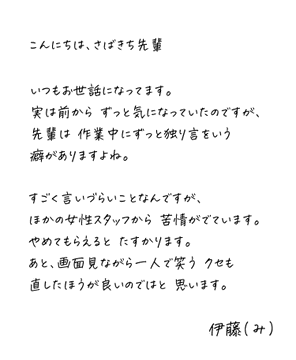 こんにちは、さばきち先輩
いつもお世話になってます。
実は前から ずっと気になっていたのですが、
先輩は 作業中にずっと独り言をいう
癖がありますよね。
すごく言いづらいことなんですが、
ほかの女性スタッフから 苦情がでています。
やめてもらえると たすかります。
あと、画面見ながら一人で笑う クセも
直したほうが良いのではと 思います。
伊藤(み)